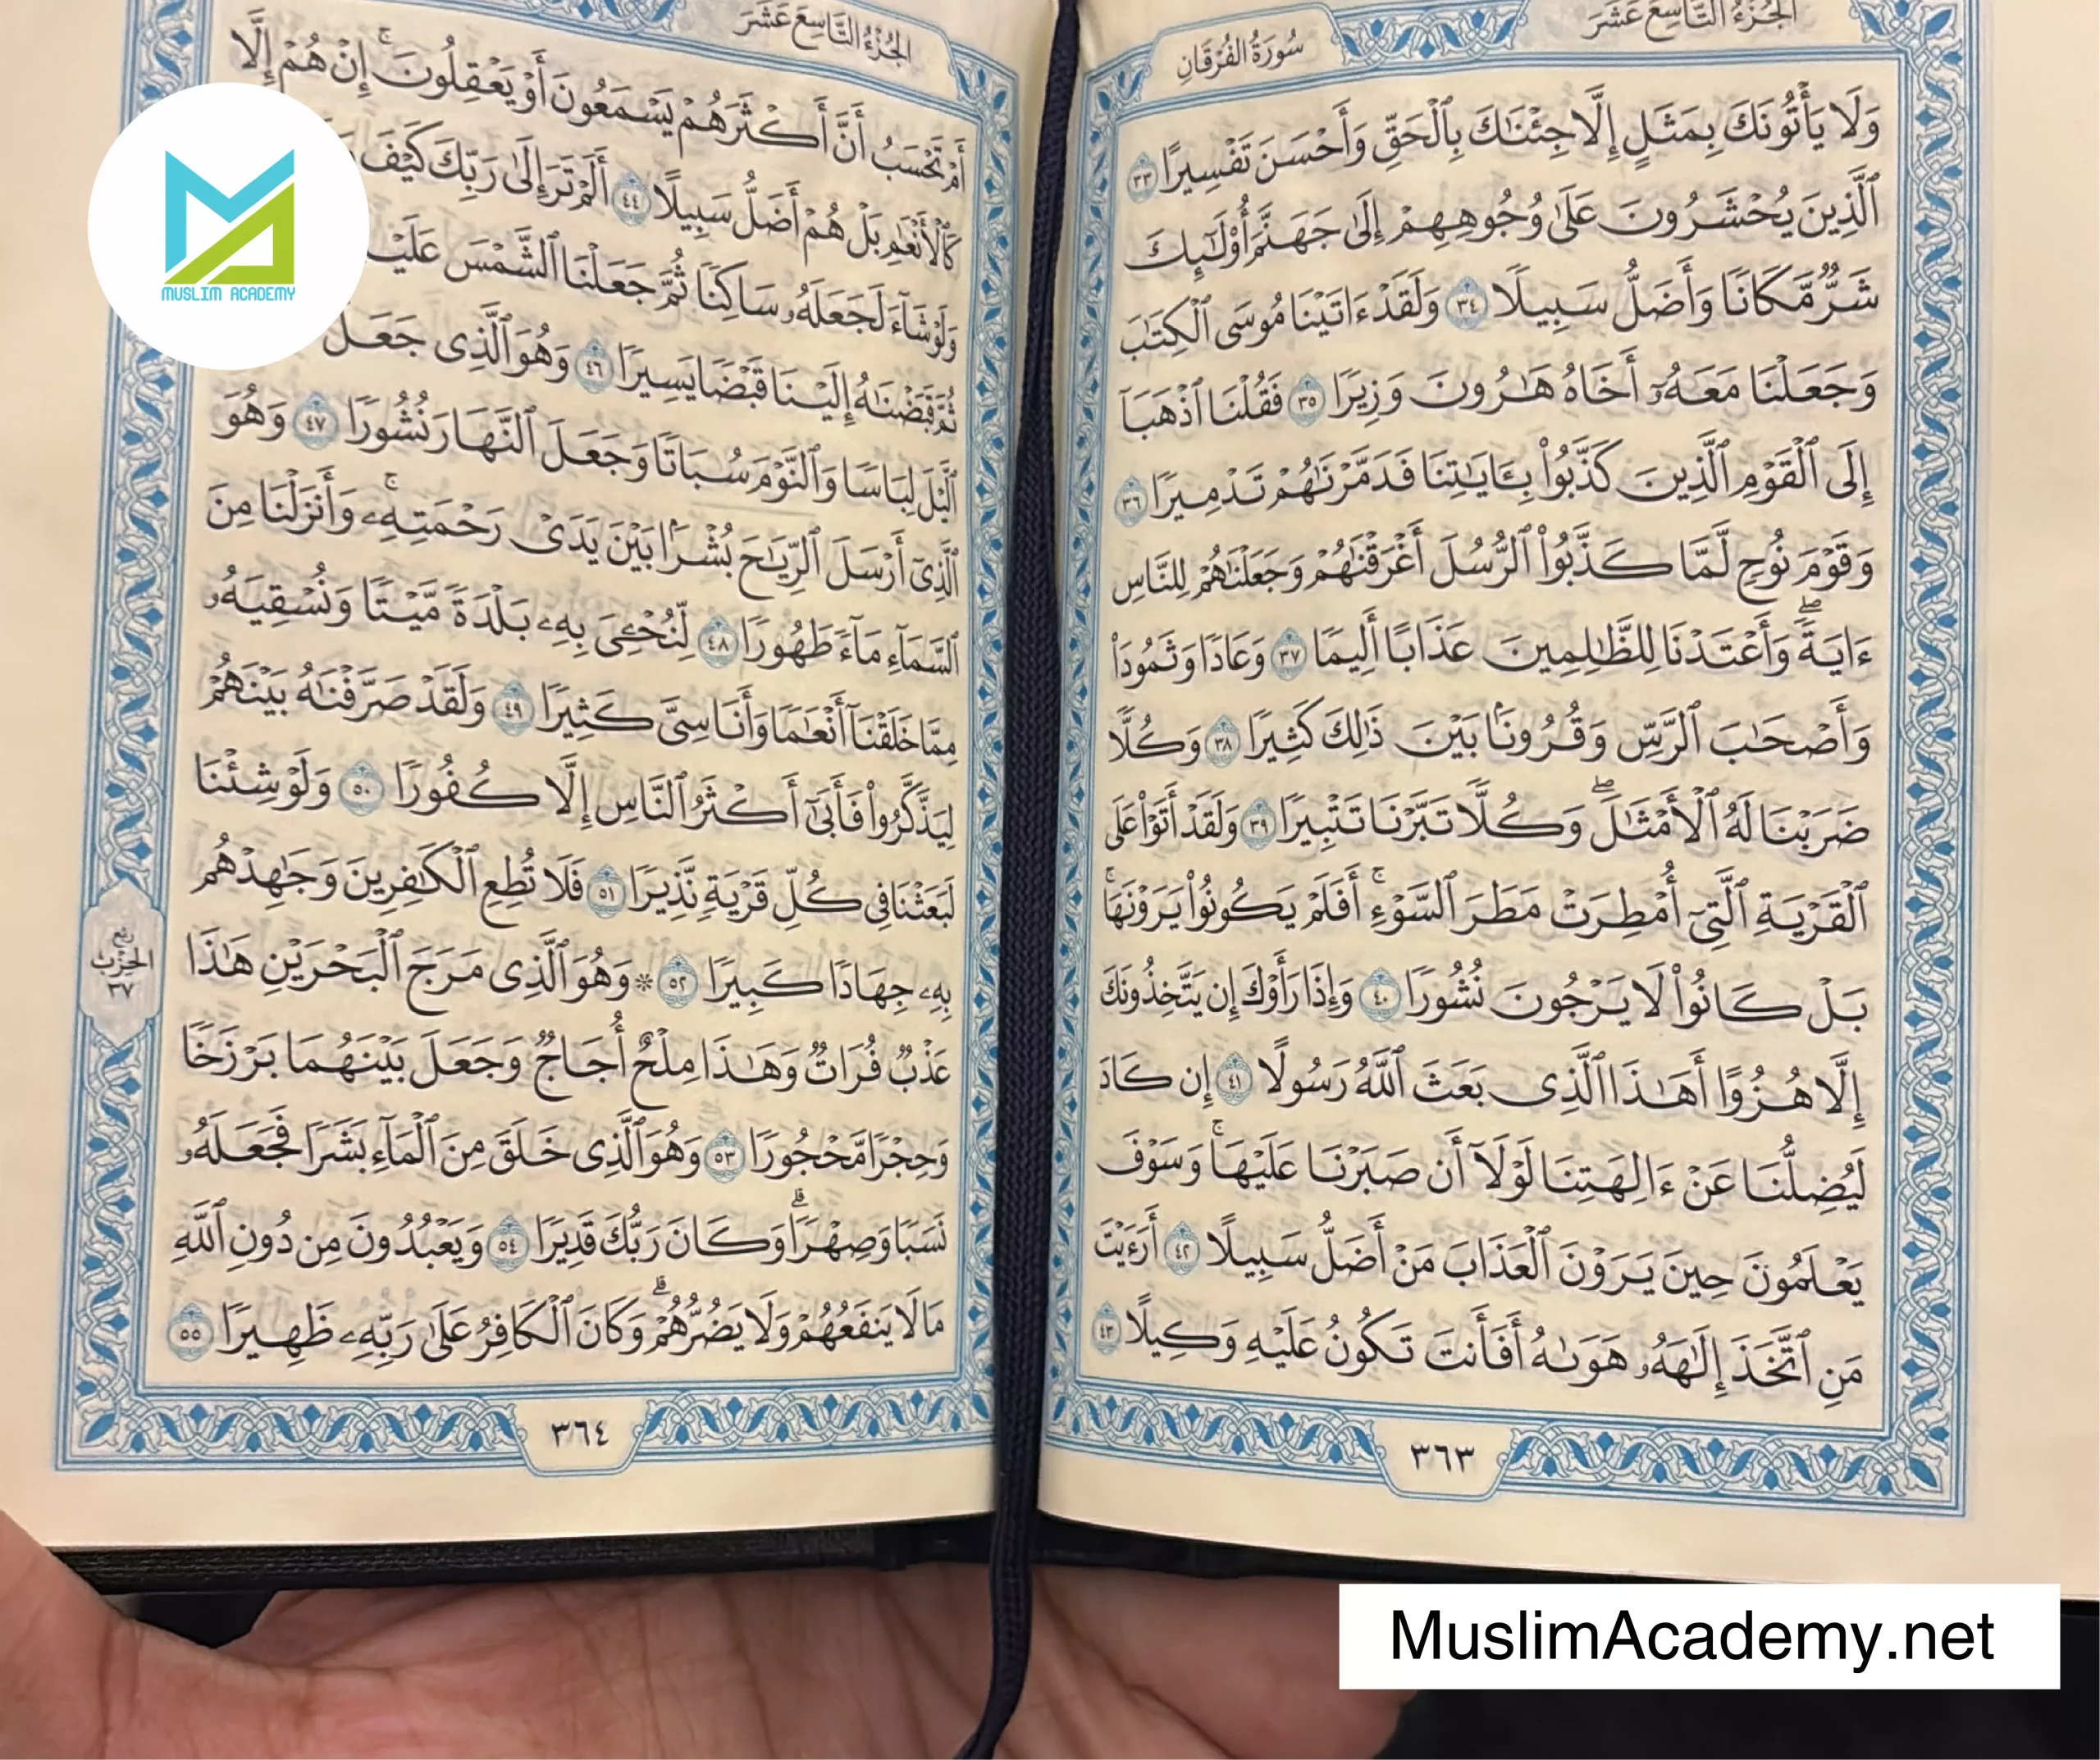 الجُزْءُ التَّاسِعَ عَشَرَ
سُورَةُ الفُرْقَانِ
وَلَا يَأْتُونَكَ بِمَثَلٍ إِلَّا جِئْنَٰكَ بِٱلْحَقِّ وَأَحْسَنَ تَفْسِيرًا ٣٣
ٱلَّذِينَ يُحْشَرُونَ عَلَىٰ وُجُوهِهِمْ إِلَىٰ جَهَنَّمَ أُوْلَٰٓئِكَ
شَرٌّ مَّكَانًا وَأَضَلُّ سَبِيلًا ٣٤ وَلَقَدْ ءَاتَيْنَا مُوسَى ٱلْكِتَٰبَ
وَجَعَلْنَا مَعَهُۥٓ أَخَاهُ هَٰرُونَ وَزِيرًا ٣٥ فَقُلْنَا ٱذْهَبَآ
إِلَى ٱلْقَوْمِ ٱلَّذِينَ كَذَّبُواْ بِـَٔايَٰتِنَا فَدَمَّرْنَٰهُمْ تَدْمِيرًا ٣٦
وَقَوْمَ نُوحٍ لَّمَّا كَذَّبُواْ ٱلرُّسُلَ أَغْرَقْنَٰهُمْ وَجَعَلْنَٰهُمْ لِلنَّاسِ
ءَايَةً ۖ وَأَعْتَدْنَا لِلظَّٰلِمِينَ عَذَابًا أَلِيمًا ٣٧ وَعَادًا وَثَمُودَاْ
وَأَصْحَٰبَ ٱلرَّسِّ وَقُرُونًۢا بَيْنَ ذَٰلِكَ كَثِيرًا ٣٨ وَكُلًّا
ضَرَبْنَا لَهُ ٱلْأَمْثَٰلَ ۖ وَكُلًّا تَبَّرْنَا تَتْبِيرًا ٣٩ وَلَقَدْ أَتَوْاْ عَلَى
ٱلْقَرْيَةِ ٱلَّتِىٓ أُمْطِرَتْ مَطَرَ ٱلسَّوْءِ ۚ أَفَلَمْ يَكُونُواْ يَرَوْنَهَا ۚ
بَلْ كَانُواْ لَا يَرْجُونَ نُشُورًا ٤٠ وَإِذَا رَأَوْكَ إِن يَتَّخِذُونَكَ
إِلَّا هُزُوًا أَهَٰذَا ٱلَّذِى بَعَثَ ٱللَّهُ رَسُولًا ٤١ إِن كَادَ
لَيُضِلُّنَا عَنْ ءَالِهَتِنَا لَوْلَآ أَن صَبَرْنَا عَلَيْهَا ۚ وَسَوْفَ
يَعْلَمُونَ حِينَ يَرَوْنَ ٱلْعَذَابَ مَنْ أَضَلُّ سَبِيلًا ٤٢ أَرَءَيْتَ
مَنِ ٱتَّخَذَ إِلَٰهَهُۥ هَوَىٰهُ أَفَأَنتَ تَكُونُ عَلَيْهِ وَكِيلًا ٤٣
٣٦٣
الجُزْءُ التَّاسِعَ عَشَرَ
أَمْ تَحْسَبُ أَنَّ أَكْثَرَهُمْ يَسْمَعُونَ أَوْ يَعْقِلُونَ ۚ إِنْ هُمْ إِلَّا
كَٱلْأَنْعَٰمِ بَلْ هُمْ أَضَلُّ سَبِيلًا ٤٤ أَلَمْ تَرَ إِلَىٰ رَبِّكَ كَيْفَ
وَلَوْ شَآءَ لَجَعَلَهُۥ سَاكِنًا ثُمَّ جَعَلْنَا ٱلشَّمْسَ
ثُمَّ قَبَضْنَٰهُ إِلَيْنَا قَبْضًا يَسِيرًا ٤٦ وَهُوَ ٱلَّذِى جَعَلَ
ٱلَّيْلَ لِبَاسًا وَٱلنَّوْمَ سُبَاتًا وَجَعَلَ ٱلنَّهَارَ نُشُورًا ٤٧ وَهُوَ
ٱلَّذِىٓ أَرْسَلَ ٱلرِّيَٰحَ بُشْرًۢا بَيْنَ يَدَىْ رَحْمَتِهِۦ ۚ وَأَنزَلْنَا مِنَ
ٱلسَّمَآءِ مَآءً طَهُورًا ٤٨ لِّنُحْـِۧىَ بِهِۦ بَلْدَةً مَّيْتًا وَنُسْقِيَهُۥ
مِمَّا خَلَقْنَآ أَنْعَٰمًا وَأَنَاسِىَّ كَثِيرًا ٤٩ وَلَقَدْ صَرَّفْنَٰهُ بَيْنَهُمْ
لِيَذَّكَّرُواْ فَأَبَىٰٓ أَكْثَرُ ٱلنَّاسِ إِلَّا كُفُورًا ٥٠ وَلَوْ شِئْنَا
لَبَعَثْنَا فِى كُلِّ قَرْيَةٍ نَّذِيرًا ٥١ فَلَا تُطِعِ ٱلْكَٰفِرِينَ وَجَٰهِدْهُم
بِهِۦ جِهَادًا كَبِيرًا ٥٢ * وَهُوَ ٱلَّذِى مَرَجَ ٱلْبَحْرَيْنِ هَٰذَا
عَذْبٌ فُرَاتٌ وَهَٰذَا مِلْحٌ أُجَاجٌ وَجَعَلَ بَيْنَهُمَا بَرْزَخًا
وَحِجْرًا مَّحْجُورًا ٥٣ وَهُوَ ٱلَّذِى خَلَقَ مِنَ ٱلْمَآءِ بَشَرًا فَجَعَلَهُۥ
نَسَبًا وَصِهْرًا ۗ وَكَانَ رَبُّكَ قَدِيرًا ٥٤ وَيَعْبُدُونَ مِن دُونِ ٱللَّهِ
مَا لَا يَنفَعُهُمْ وَلَا يَضُرُّهُمْ ۗ وَكَانَ ٱلْكَافِرُ عَلَىٰ رَبِّهِۦ ظَهِيرًا ٥٥
ربع
الحزب
٣٧
٣٦٤
MUSLIM ACADEMY
MuslimAcademy.net